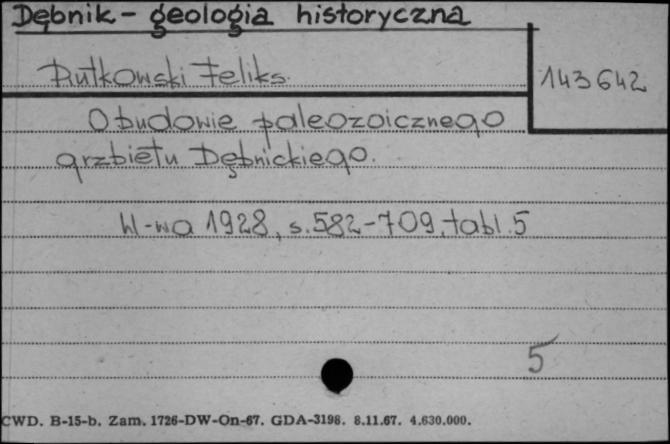 Dębnik - geologia historyczna
Rutkowski Feliks.
143642
O budowie paleozoicznego
grzbietu Dębnickiego.
W-wa 1928, s. 582-709, tabl. 5
5
CWD. B-15-b. Zam. 1726-DW-On-67. GDA-3198. 8.11.67. 4.630.000.